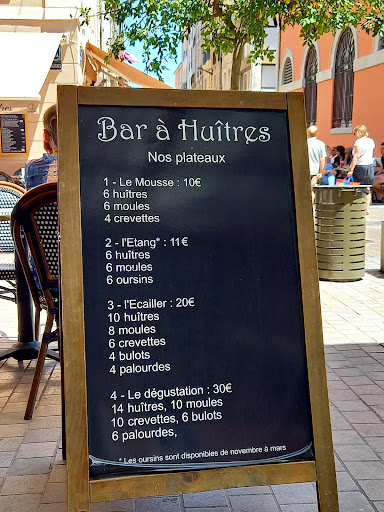 Bar à Huîtres
Nos plateaux
1 - Le Mousse : 10€
6 huîtres
6 moules
4 crevettes
2 - l'Etang* : 11€
6 huîtres
6 moules
6 oursins
3 - l'Ecailler : 20€
10 huîtres
8 moules
6 crevettes
4 bulots
4 palourdes
4 - Le dégustation : 30€
14 huîtres, 10 moules
10 crevettes, 6 bulots
6 palourdes,
* Les oursins sont disponibles de novembre à mars